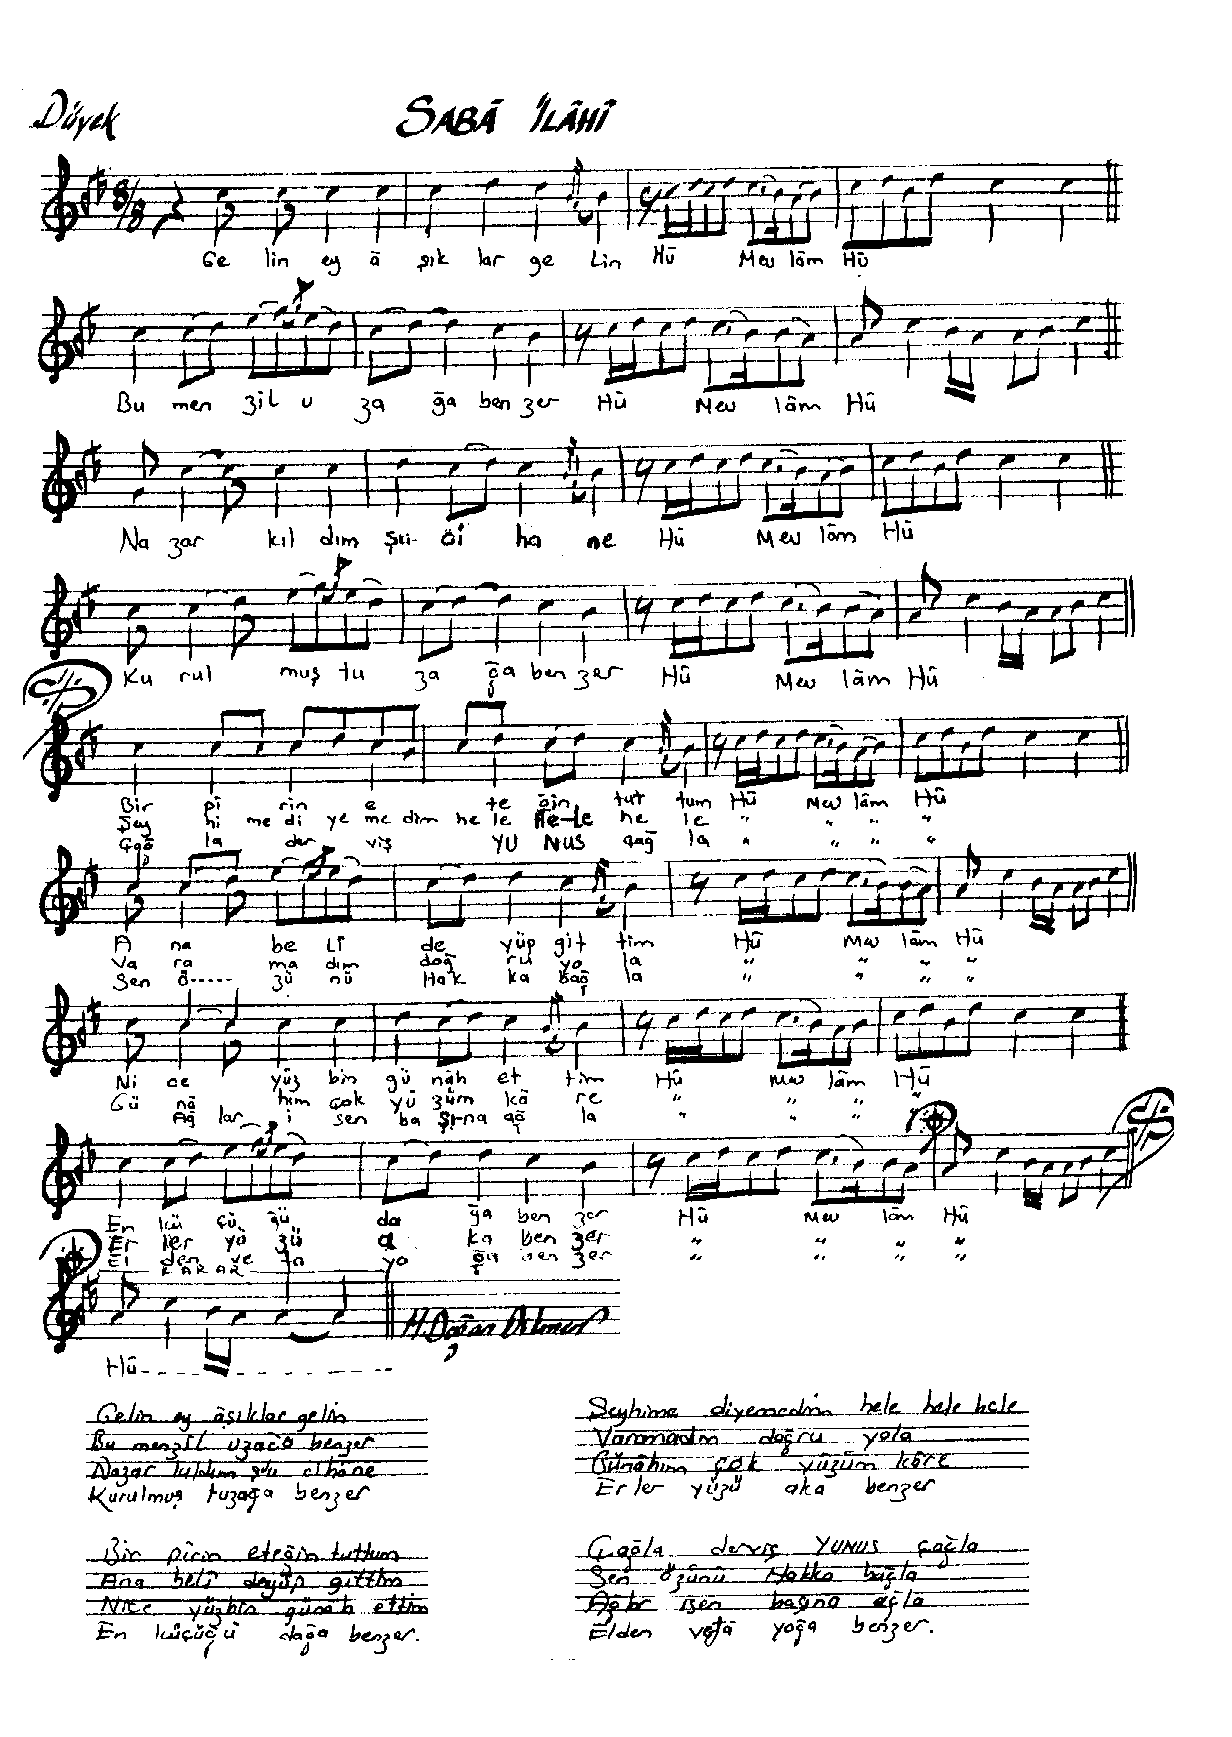 Düyek
SABÂ İLÂHÎ
8/8
Ge lin ey â şık lar ge Lin Hû Mev lâm Hû
Bu men zil u za ğa ben zer Hû Mev lâm Hû
Na zar kıl dım şu ci ha ne Hû Mev lâm Hû
Ku rul muş tu za ğa ben zer Hû Mev lâm Hû
Bir pi rin e te ğin tut tum Hû Mev lâm Hû
Şey hi me di ye me dim he le He-Le he le " " " "
Çağ la der viş YU NUS çağ la " " " "
A na be Lî de yüp git tim Hû Mev lâm Hû
Va ra ma dım doğ ru yo la " " " "
Sen ö----- zü nü Hak ka bağ la " " " "
Ni ce yüz bin gü nah et tim Hû Mev lâm Hû
Gü nâ hım çok yü züm kâ re " " " "
Ağ lar i sen ba şı-na ağ la " " " "
En kü çü ğü da ğa ben zer Hû Mev lâm Hû
Er ler yü zü a ka ben zer " " " "
El den ve fa yo ğa ben zer " " " "
KARAR
Hû- - - - - - - - - - -
Gelin ey âşıklar gelin
Bu menzil uzağa benzer
Nazar kıldım şu cihâne
Kurulmuş tuzağa benzer
Bir pirin eteğin tuttum
Ana belî deyüp gittim
Nice yüzbin günah ettim
En küçüğü dağa benzer.
Şeyhime diyemedim hele hele hele
Varamadım doğru yola
Günâhım çok yüzüm kâre
Erler yüzü aka benzer
Çağla derviş YUNUS çağla
Sen özünü Hakka bağla
Ağlar isen başına ağla
Elden vefâ yoğa benzer.